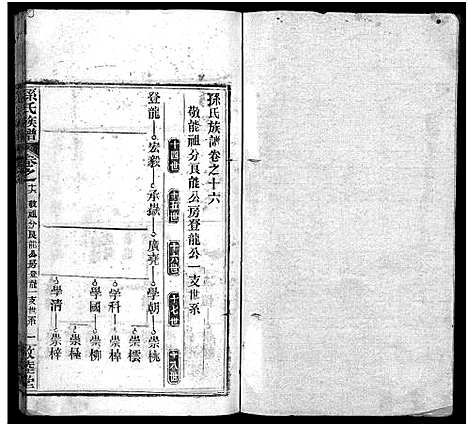 孫氏族譜卷之十六
敬能祖分良能公房登龍公一支世系
十四世 十五世 十六世 十七世 十八世
登龍 宏毅 承嶽 廣堯 學朝 崇桃
崇檽
學科 崇棹
學國 崇柳
崇極
學清 崇梓
孫氏族譜 卷之十六 敬祖分良能公房登龍一支世系 一 敦睦堂